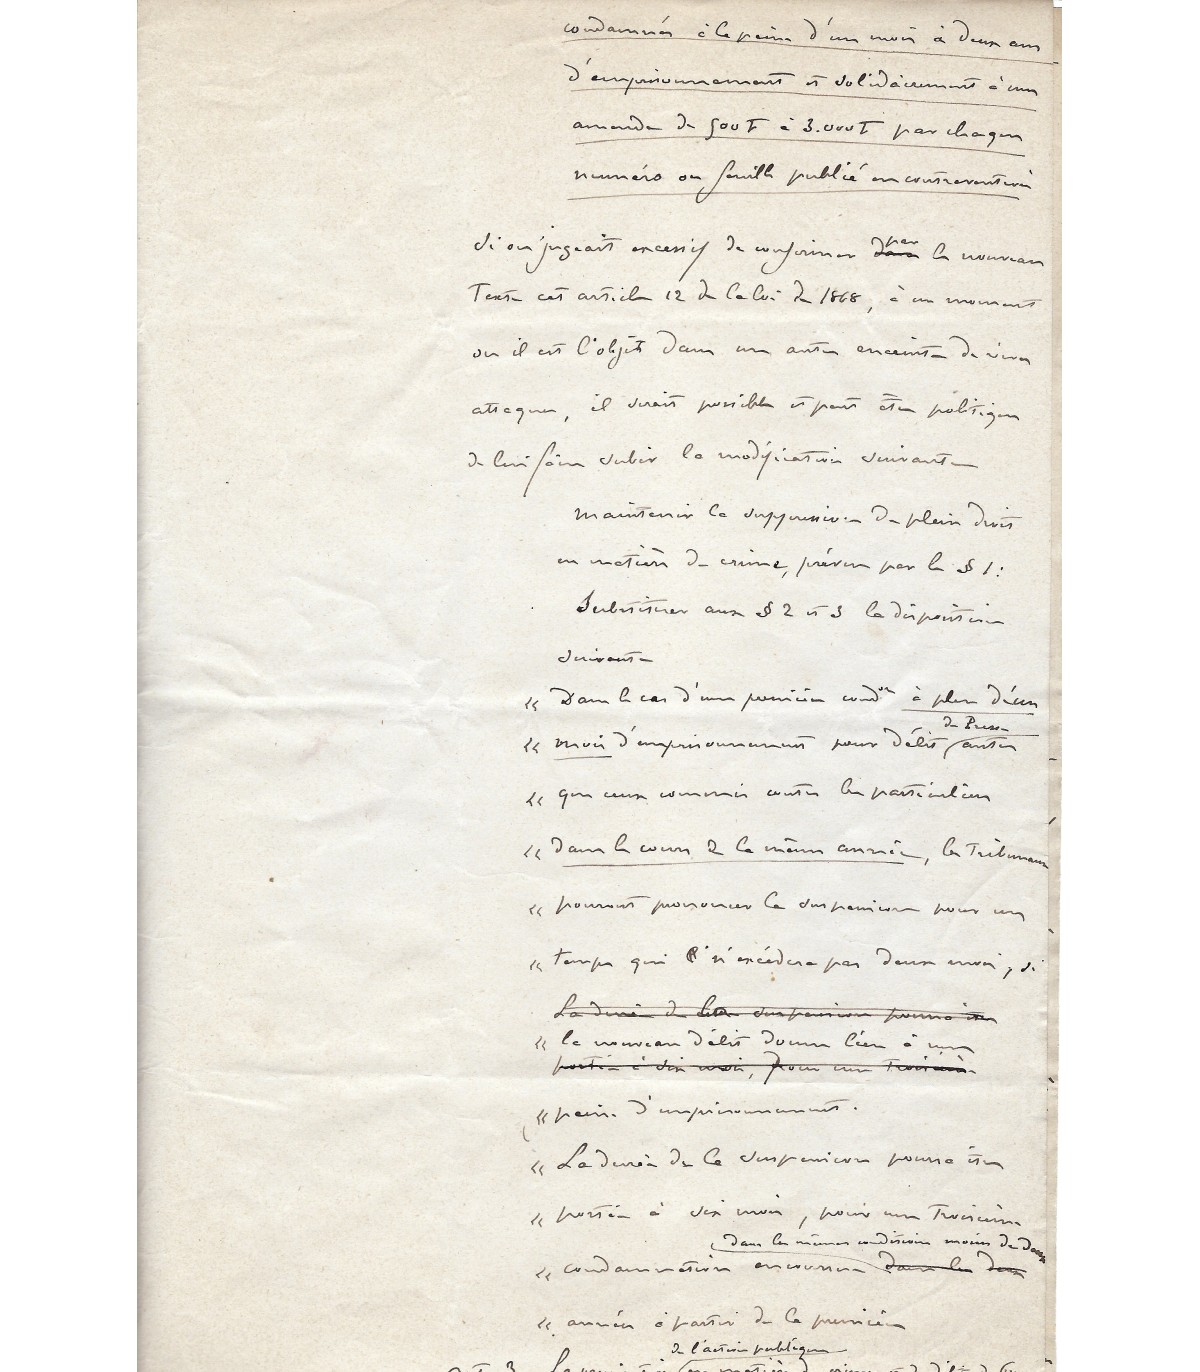 condamnés à la peine d'un mois à deux ans
d'emprisonnement et solidairement à une
amende de 500 f à 3.000 f par chaque
numéro ou feuille publié en contravention
Si on jugeait excessif de confirmer dans par le nouveau
Texte cet article 12 de la loi de 1868, à un moment
ou il est l'objet dans une autre enceinte de vives
attaques, il serait possible et peut être politique
de lui faire subir la modification suivante
maintenir la suppression de plein droit
en matière de crime, prévue par le § 1 :
Substituer aux § 2 et 3 la disposition
suivante
« Dans le cas d'une première cond.on à plus d'un
de Presse
« mois d'emprisonnement pour délit autre
« que ceux commis contre les particuliers
« dans le cours de la même année, les Tribunaux
« pourront prononcer la suspension pour un
« temps qui n'excédera pas deux mois, si
La durée de la suspension pourra être
« le nouveau délit donne lieu à une
portée à six mois, pour une troisième
« peine d'emprisonnement.
« La durée de la suspension pourra être
« portée à six mois, pour une troisième
dans les mêmes conditions moins de deux
« condamnation encourue dans les deux
« années à partir de la première
de l'action publique